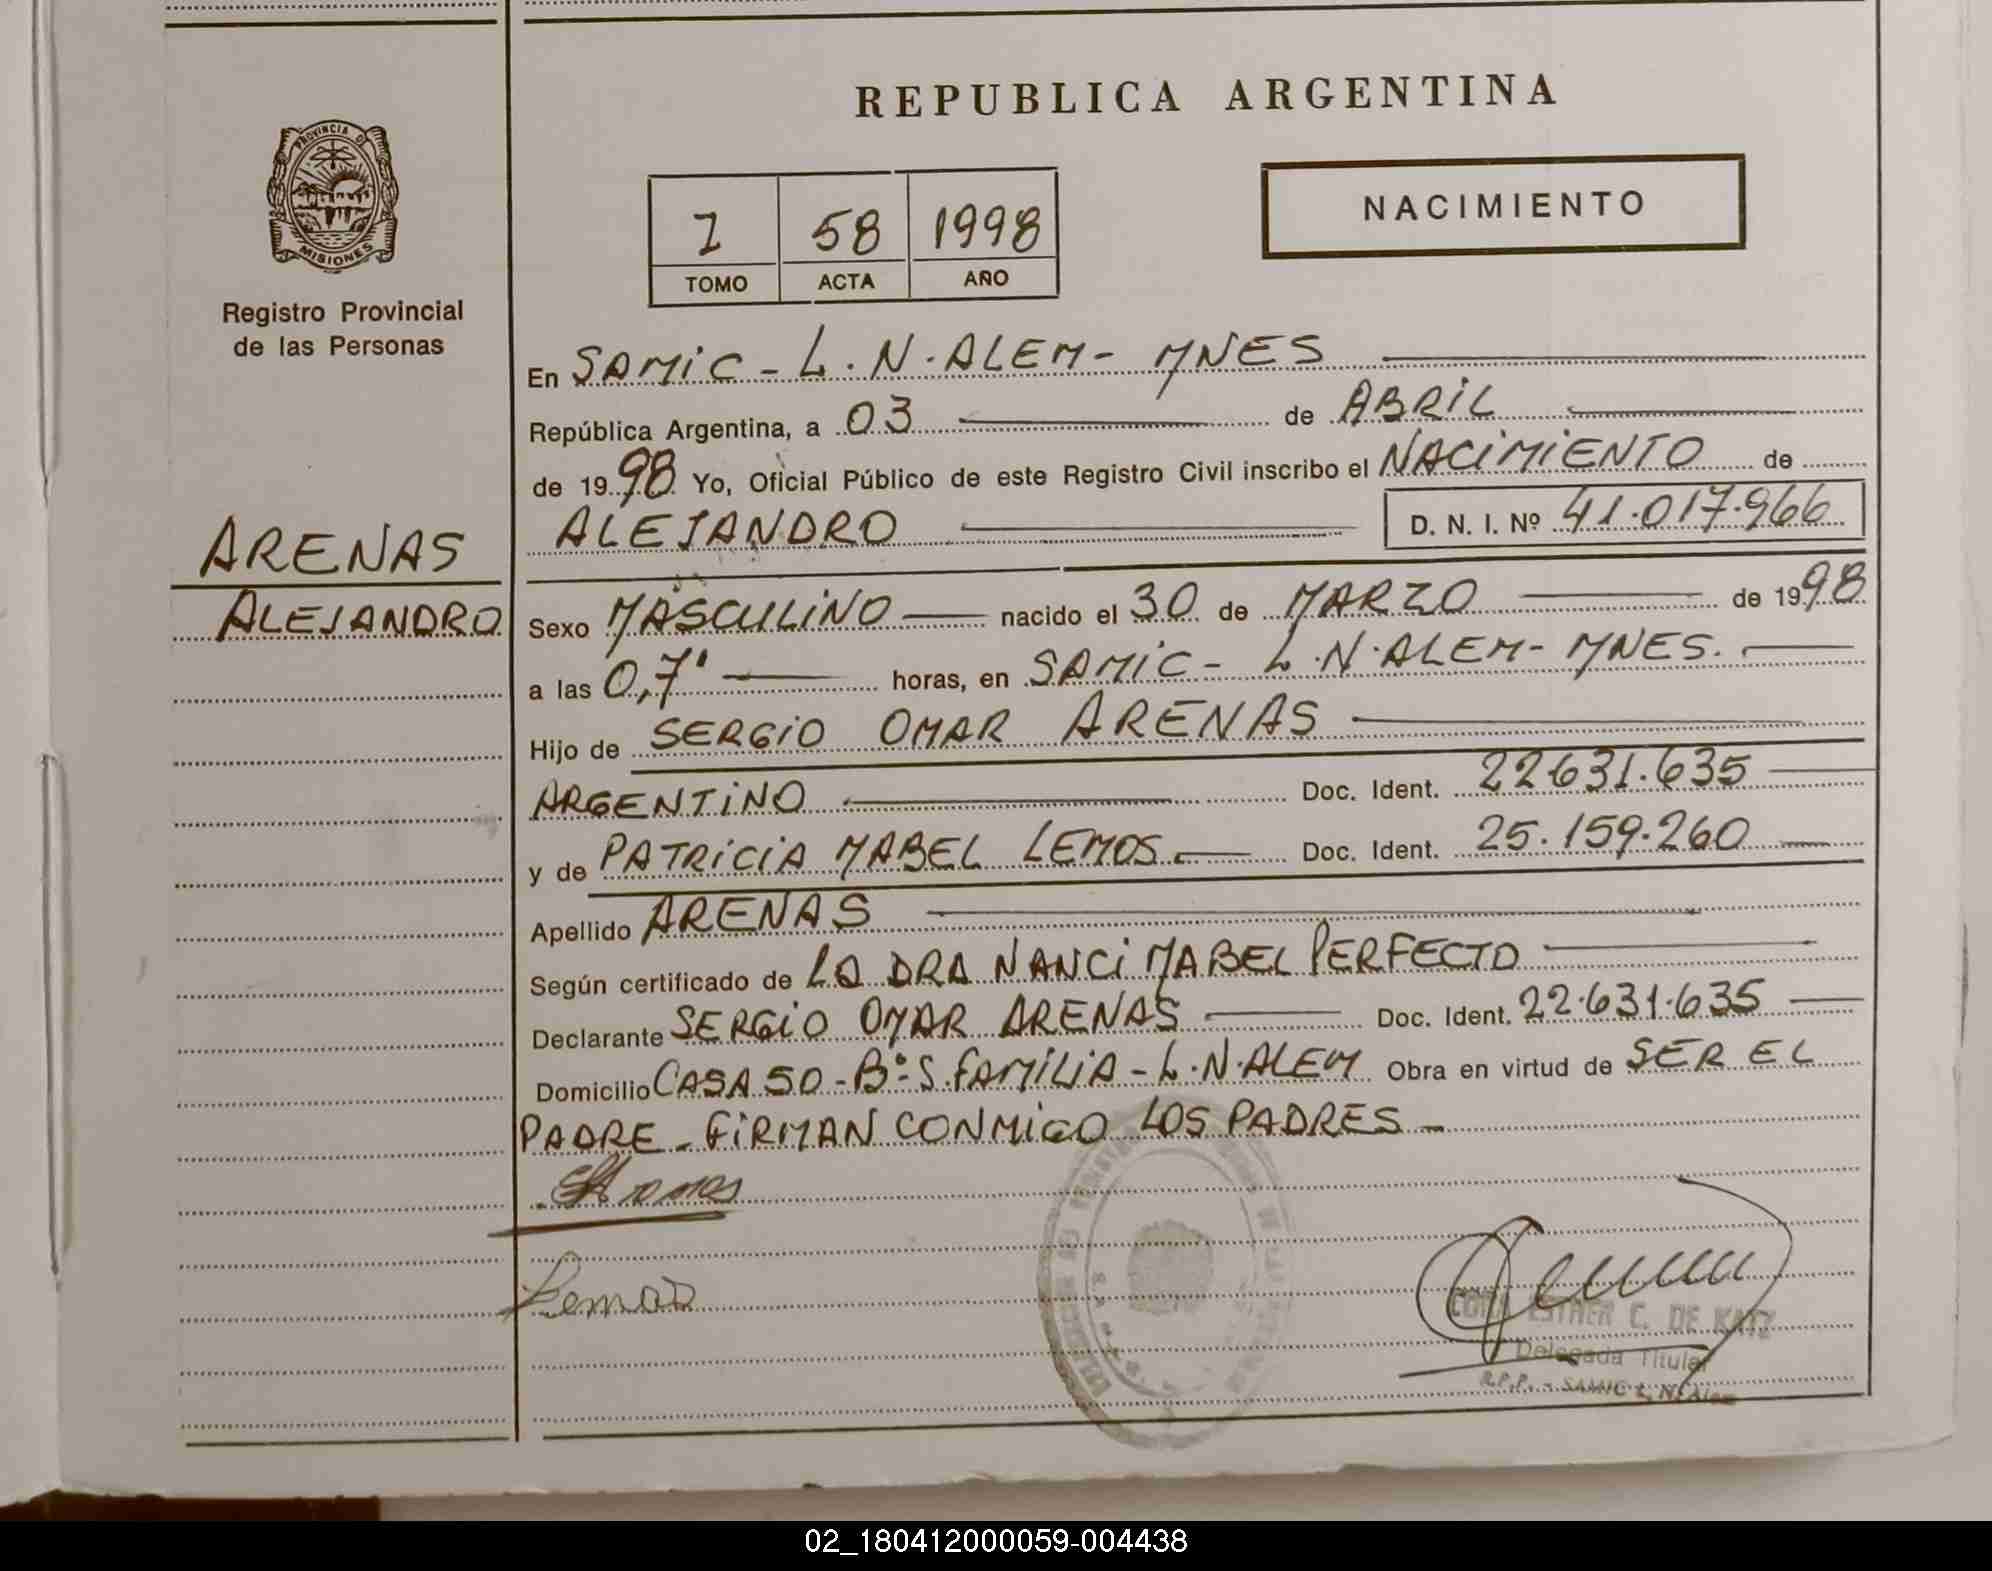 REPUBLICA ARGENTINA
PROVINCIA DE
MISIONES
Registro Provincial
de las Personas
ARENAS
ALEJANDRO
58 1998
TOMO ACTA AÑO
NACIMIENTO
En SAMIC - L. N. ALEM - MNES
República Argentina, a 03 de ABRIL
de 1998 Yo, Oficial Público de este Registro Civil inscribo el NACIMIENTO de
ALEJANDRO D. N. I. Nº 41.017.966
Sexo MASCULINO nacido el 30 de MARZO de 1998
a las 0,7' horas, en SAMIC - L. N. ALEM - MNES.
Hijo de SERGIO OMAR ARENAS
ARGENTINO Doc. Ident. 22.631.635
y de PATRICIA MABEL LEMOS Doc. Ident. 25.159.260
Apellido ARENAS
Según certificado de LA DRA NANCI MABEL PERFECTO
Declarante SERGIO OMAR ARENAS Doc. Ident. 22.631.635
Domicilio CASA 50 - Bº S. FAMILIA - L. N. ALEM Obra en virtud de SER EL
PADRE - FIRMAN CONMIGO LOS PADRES -
Lemos
ESTHER C. DE KATZ
Delegada Titular
R.P.P. - SAMIC L. N. Alem
02_180412000059-004438